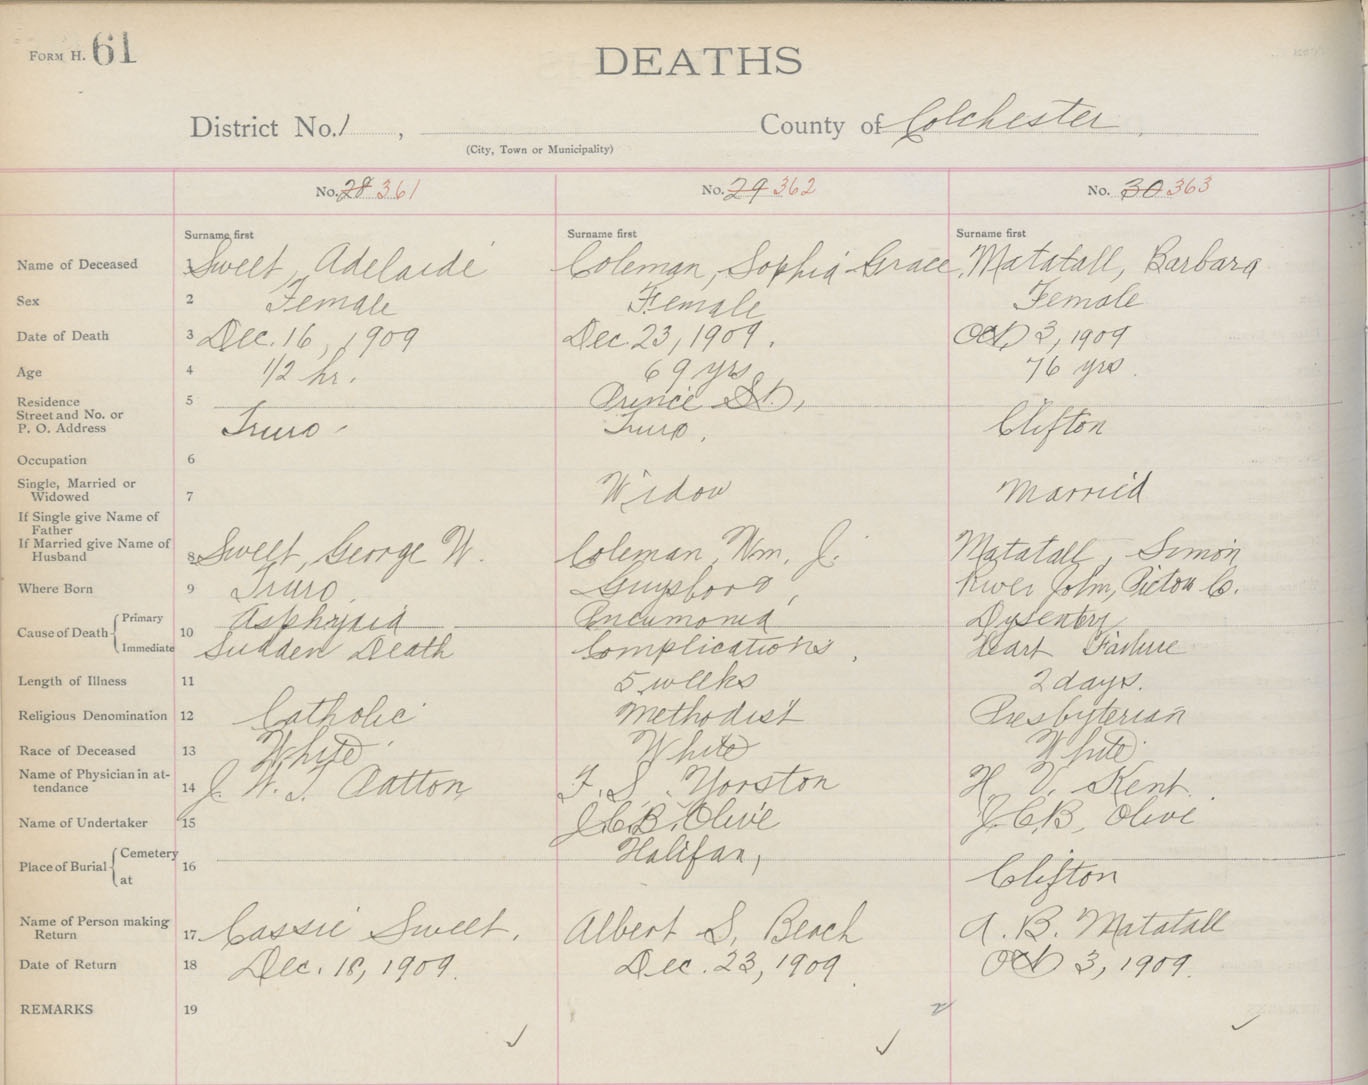 FORM H. 61
DEATHS
District No. 1 , County of Colchester
(City, Town or Municipality)
No. 28 361 No. 29 362 No. 30 363
Surname first Surname first Surname first
Name of Deceased 1 Sweet, Adelaide Coleman, Sophia Grace Matatall, Barbara
Sex 2 Female Female Female
Date of Death 3 Dec. 16, 1909 Dec. 23, 1909. Oct 3, 1909
Age 4 1/2 hr. 69 yrs 76 yrs.
Residence 5 Prince St.,
Street and No. or
P. O. Address Truro Truro, Clifton
Occupation 6
Single, Married or
Widowed 7 Widow Married
If Single give Name of
Father
If Married give Name of
Husband 8 Sweet, George W. Coleman, Wm. J. Matatall, Simon
Where Born 9 Truro, Guysboro, River John, Pictou C.
Cause of Death Primary 10 Asphyxia Pneumonia Dysentry
Immediate Sudden Death Complications, Heart Failure
Length of Illness 11 5 weeks 2 days.
Religious Denomination 12 Catholic Methodist Presbyterian
Race of Deceased 13 White White White
Name of Physician in at-
tendance 14 J. W. T. Patton F. S. Yorston H. V. Kent
Name of Undertaker 15 J.C.B. Olive J.C.B. Olive
Place of Burial Cemetery 16 Halifax,
at Clifton
Name of Person making
Return 17 Cassie Sweet. Albert S. Beach A. B. Matatall
Date of Return 18 Dec. 18, 1909. Dec. 23, 1909. Oct 3, 1909.
REMARKS 19